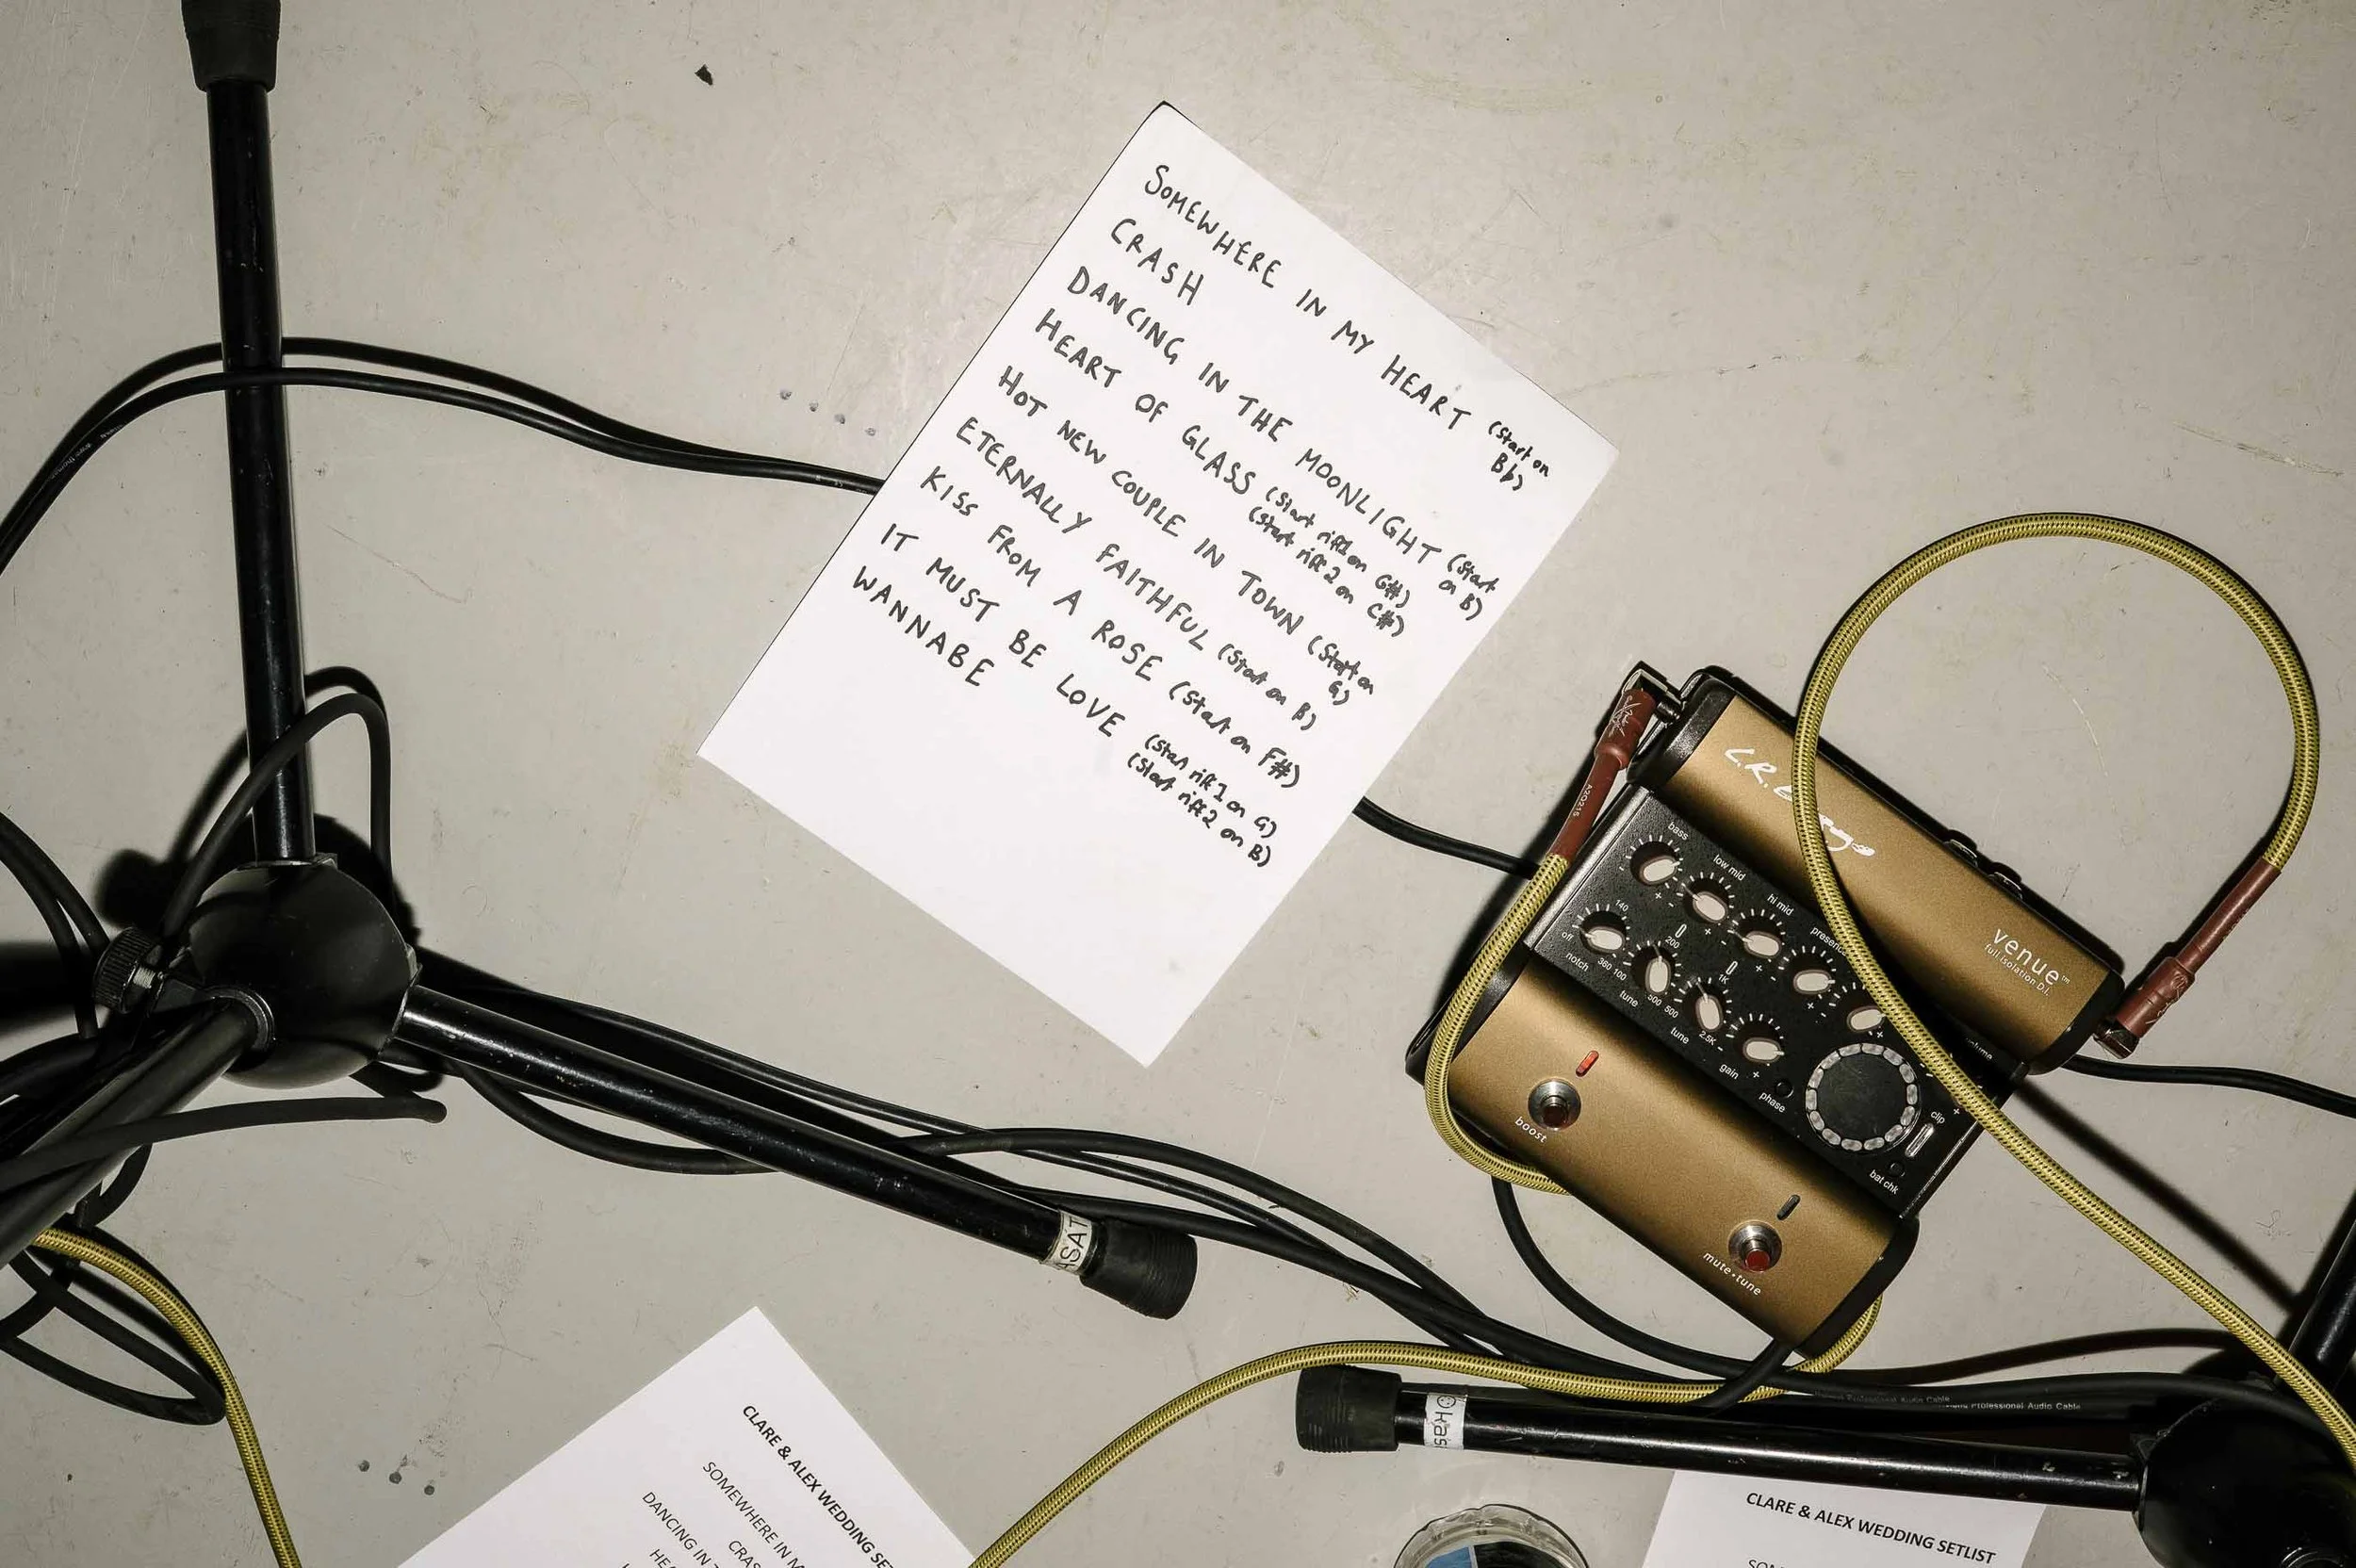 SOMEWHERE IN MY HEART (Start on
Bb)
CRASH
DANCING IN THE MOONLIGHT (Start
on B)
HEART OF GLASS (Start riff 1 on G#)
(Start riff 2 on C#)
HOT NEW COUPLE IN TOWN (Start on
G)
ETERNALLY FAITHFUL (Start on B)
KISS FROM A ROSE (Start on F#)
IT MUST BE LOVE (Start riff 1 on G)
(Start riff 2 on B)
WANNABE
L.R. Baggs
venue™
full isolation D.I.
bass
low mid
hi mid
presence
volume
140
200
1K
off
notch
360
100
tune
500
500
tune
2.5K
gain
phase
clip
bat chk
boost
mute•tune
A20215
Professional Audio Cable
Professional Audio Cable
CLARE & ALEX WEDDING
SOMEWHERE IN
CRAS
DANCING IN T
CLARE & ALEX WEDDING SETLIST